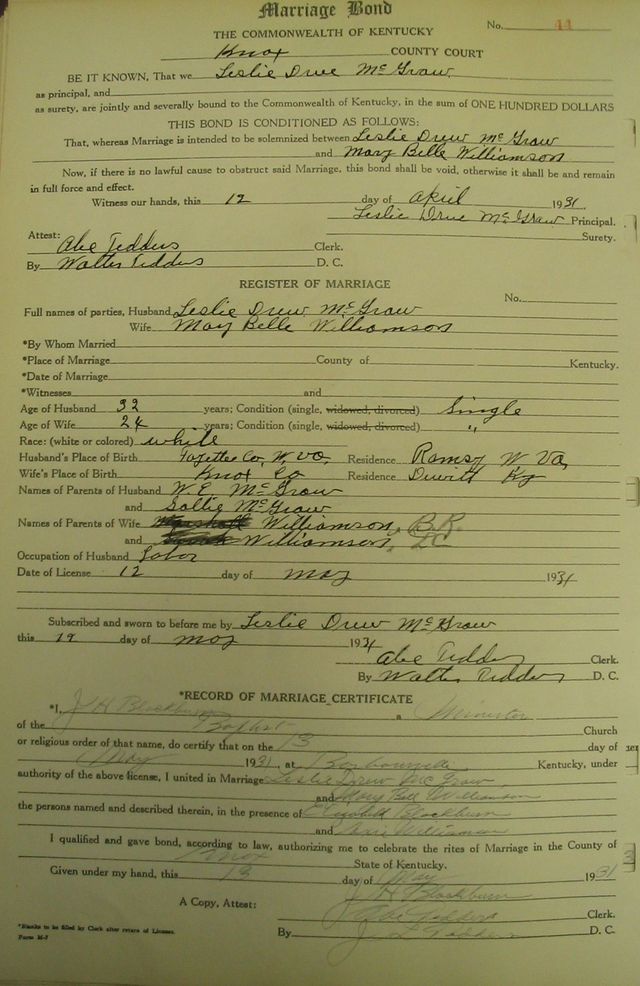 Marriage Bond
THE COMMONWEALTH OF KENTUCKY No. 44
Knox COUNTY COURT
BE IT KNOWN, That we Leslie Drue McGraw
as principal, and
as surety, are jointly and severally bound to the Commonwealth of Kentucky, in the sum of ONE HUNDRED DOLLARS
THIS BOND IS CONDITIONED AS FOLLOWS:
That, whereas Marriage is intended to be solemnized between Leslie Drew McGraw
and Mary Belle Williamson
Now, if there is no lawful cause to obstruct said Marriage, this bond shall be void, otherwise it shall be and remain
in full force and effect.
Witness our hands, this 12 day of April 1931
Leslie Drue McGraw Principal.
Attest: Surety.
Abe Tedders Clerk.
By Walter Tedders D. C.
REGISTER OF MARRIAGE
No.
Full names of parties, Husband Leslie Drew McGraw
Wife May Belle Williamson
*By Whom Married
*Place of Marriage County of Kentucky.
*Date of Marriage
*Witnesses and
Age of Husband 32 years; Condition (single, widowed, divorced) Single
Age of Wife 24 years; Condition (single, widowed, divorced) "
Race: (white or colored) white
Husband's Place of Birth Fayette Co, W. Va. Residence Ramsy W Va,
Wife's Place of Birth Knox Co Residence Dewitt Ky
Names of Parents of Husband W. E. McGraw
and Sallie McGraw
Names of Parents of Wife Williamson, B.R.
and Williamson,
Occupation of Husband Labor
Date of License 12 day of may 1931
Subscribed and sworn to before me by Leslie Drew McGraw
this 12 day of may 1931
Abe Tedders Clerk.
By Walter Tedders D. C.
*RECORD OF MARRIAGE CERTIFICATE
*I, J H Blackburn a Minister
of the Baptist Church
or religious order of that name, do certify that on the 13 day of
May 1931, at Barbourville Kentucky, under
authority of the above license, I united in Marriage Leslie Drew McGraw
and Mary Bell Williamson
the persons named and described therein, in the presence of Elizabeth Blackburn
and Williamson
I qualified and gave bond, according to law, authorizing me to celebrate the rites of Marriage in the County of
Knox State of Kentucky.
Given under my hand, this 13 day of May 1931
J H Blackburn
A Copy, Attest: Abe Tedders Clerk.
By D. C.
*Blanks to be filled by Clerk after return of License.
Form M-7